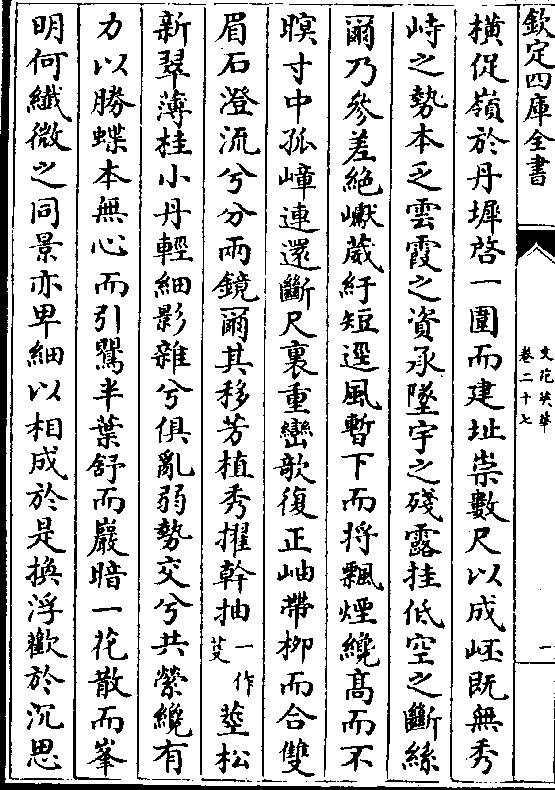 欽定四庫全書
文苑英華
卷二十七
一
橫促嶺於丹墀啓一圍而建址崇數尺以成岯既無秀
峙之勢本乏雲霞之資承墜宇之殘露挂低空之斷絲
爾乃參差絶巘葳紆短逕風暫下而將飄煙纔髙而不
暝寸中孤嶂連還斷尺裏重巒欹復正岫帶栁而合雙
眉石澄流兮分兩鏡爾其移芳植秀擢幹抽一作茭莖松
新翠薄桂小丹輕細影雜兮俱亂弱勢交兮共縈纔有
力以勝蝶本無心而引鸎半葉舒而巖暗一花散而峯
明何纖微之同景亦卑細以相成於是換浮歡於沉思